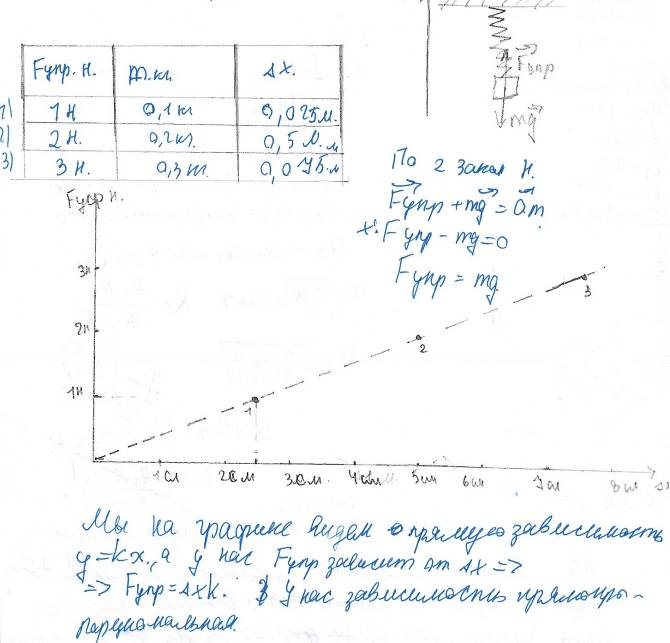 Fупр. Н. m.кг. Δx.
1) 1Н 0,1кг 0,025м.
2) 2Н. 0,2кг. 0,5м.м
3) 3Н. 0,3кг. 0,075.м
Fупр
mg
По 2 закон Н.
Fупр + mg = am
x: Fупр - mg = 0
Fупр = mg.
Fупр Н.
3н
2н
1н
1 2 3
1см 2см 3см. 4см 5см 6см 7см 8см
Мы на графике видем прямую зависимость
y=kx., а у нас Fупр зависит от Δx =>
=> Fупр = Δxk. У нас зависимость прямопро-
порциональная.